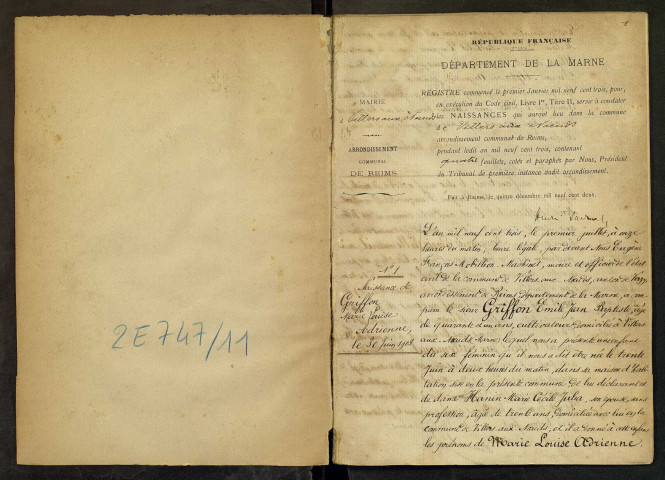 2E747/11
8
RÉPUBLIQUE FRANÇAISE
DÉPARTEMENT DE LA MARNE
MAIRIE
Villers aux Nœuds
ARRONDISSEMENT
COMMUNAL
DE REIMS
REGISTRE commencé le premier Janvier mil neuf cent trois, pour,
en exécution du Code civil, Livre Ier, Titre II, servir à constater
les NAISSANCES qui auront lieu dans la commune
de Villers aux Nœuds
arrondissement communal de Reims,
pendant ledit an mil neuf cent trois, contenant
quatre feuillets, cotés et paraphés par Nous, Président
du Tribunal de première instance dudit arrondissement.
Fait à Reims, le quatre décembre mil neuf cent deux.
N° 1
Naissance de
Griffon
Marie Louise
Adrienne,
le 30 juin 1903
L'an mil neuf cent trois, le premier juillet, à onze
heures du matin, heure légale, par devant Nous Eugène
François Machinet, maire et officier de l'état
civil de la commune de Villers aux Nœuds, canton de Verzy
arrondissement de Reims, département de la Marne, a com-
paru le sieur Griffon Emile Jean Baptiste, âgé
de quarante et un ans, cultivateur domicilié à Villers
aux Nœuds (Marne) lequel nous a présenté un enfant
du sexe féminin qu'il nous a dit être née le trente
juin à deux heures du matin, dans sa maison d'habi-
tation sise en la présente commune de lui déclarant et
de dame Hanin Marie Cécile Julia, son épouse, sans
profession, âgée de trente ans, domiciliée avec lui en la
commune de Villers aux Nœuds, et il a donné à cette enfant
les prénoms de Marie Louise Adrienne.